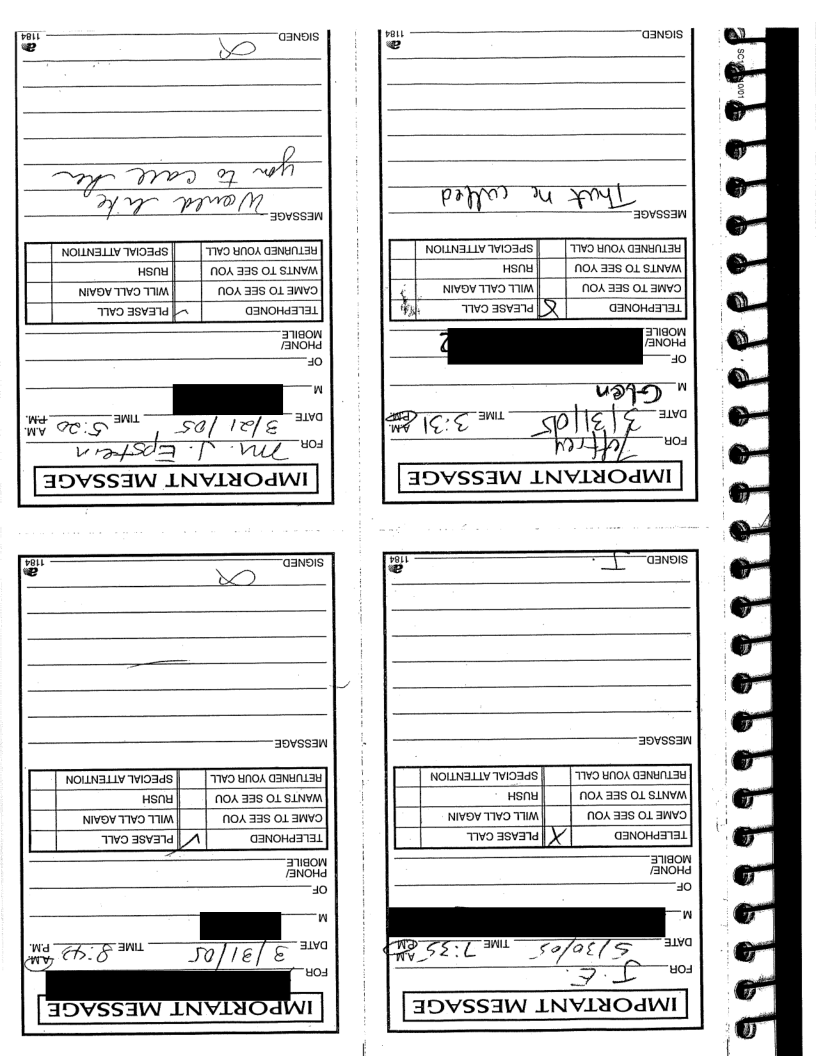 IMPORTANT MESSAGE
FOR J. E.
DATE 5/30/05 TIME 7:35 A.M. P.M.
M
OF
PHONE/
MOBILE
TELEPHONED X PLEASE CALL
CAME TO SEE YOU WILL CALL AGAIN
WANTS TO SEE YOU RUSH
RETURNED YOUR CALL SPECIAL ATTENTION
MESSAGE
SIGNED J.
1184
IMPORTANT MESSAGE
FOR
DATE 3/31/05 TIME 8:43 A.M. P.M.
M
OF
PHONE/
MOBILE
TELEPHONED ✓ PLEASE CALL
CAME TO SEE YOU WILL CALL AGAIN
WANTS TO SEE YOU RUSH
RETURNED YOUR CALL SPECIAL ATTENTION
MESSAGE
SIGNED
1184
IMPORTANT MESSAGE
FOR Jeffrey
DATE 3/31/05 TIME 3:31 A.M. P.M.
M Glen
OF
PHONE/
MOBILE 2
TELEPHONED X PLEASE CALL
CAME TO SEE YOU WILL CALL AGAIN
WANTS TO SEE YOU RUSH
RETURNED YOUR CALL SPECIAL ATTENTION
MESSAGE
That he called
SIGNED
1184
IMPORTANT MESSAGE
FOR Mr. J. Epstein
DATE 3/21/05 TIME 5:20 A.M. P.M.
M
OF
PHONE/
MOBILE
TELEPHONED ✓ PLEASE CALL
CAME TO SEE YOU WILL CALL AGAIN
WANTS TO SEE YOU RUSH
RETURNED YOUR CALL SPECIAL ATTENTION
MESSAGE
Would like
you to call her
SIGNED
1184